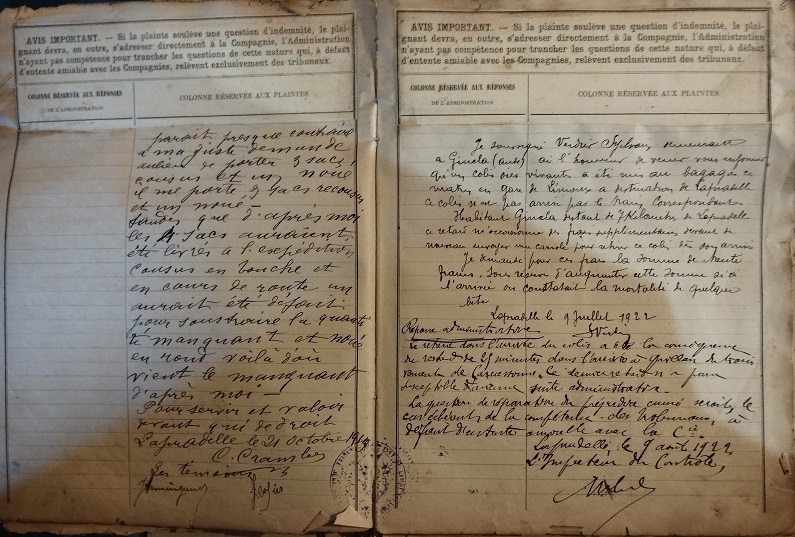 AVIS IMPORTANT. — Si la plainte soulève une question d'indemnité, le plai-
gnant devra, en outre, s'adresser directement à la Compagnie, l'Administration
n'ayant pas compétence pour trancher les questions de cette nature qui, à défaut
d'entente amiable avec les Compagnies, relèvent exclusivement des tribunaux.
COLONNE RÉSERVÉE AUX RÉPONSES
DE L'ADMINISTRATION
COLONNE RÉSERVÉE AUX PLAINTES
parait presque contraire
a ma juste demande
aulieu de porter 3 sacs
cousus et un noué
il me porte 3 sacs recousus
et un noué
tandis que d'après moi
les 4 sacs auraient
été livrés a l'expédition
cousus en bouche et
en cours de route un
aurait été défait
pour soustraire la quanti
té manquant et noué
en rond voilà d'où
vient le manquant
d'après moi —
Pour servir et valoir
ce que de droit
Lapradelle le 21 Octobre
Les temoins
AVIS IMPORTANT. — Si la plainte soulève une question d'indemnité, le plai-
gnant devra, en outre, s'adresser directement à la Compagnie, l'Administration
n'ayant pas compétence pour trancher les questions de cette nature qui, à défaut
d'entente amiable avec les Compagnies, relèvent exclusivement des tribunaux.
COLONNE RÉSERVÉE AUX RÉPONSES
DE L'ADMINISTRATION
COLONNE RÉSERVÉE AUX PLAINTES
Je soussigné Verdier Sylvain demeurant
a Gincla (aude) ai l'honneur de venir vous informer
qu'un colis oies vivantes a été mis au bagages ce
matin en gare de Limoux a destination de Lapradelle
ce colis n'est pas arrivé par le train Correspondant.
Habitant Gincla distant de 7 Kilomètres de Lapradelle
ce retard m'occasionne des frais supplementaires devant de
nouveau envoyer un carriole pour retirer ce colis dès son arrivée
Je demande pour ces frais la somme de trente
francs, sous réserve d'augmenter cette somme si a
l'arrivée on constatait la mortalité de quelque
bête
Lapradelle le 9 Juillet 1922
Réponse administrative
Le retard dans l'arrivée du colis a été la conséquence
du retard de 25 minutes dans l'arrivée à Quillan du train
venant de Carcassonne. Ce retard n'a paru
susceptible d'aucune suite administrative.
La question de réparation du préjudice causé serait, le
cas échéant, de la compétence des tribunaux, à
défaut d'entente amiable avec la Cie
Lapradelle, le 9 août 1922
L'Inspecteur du Contrôle,